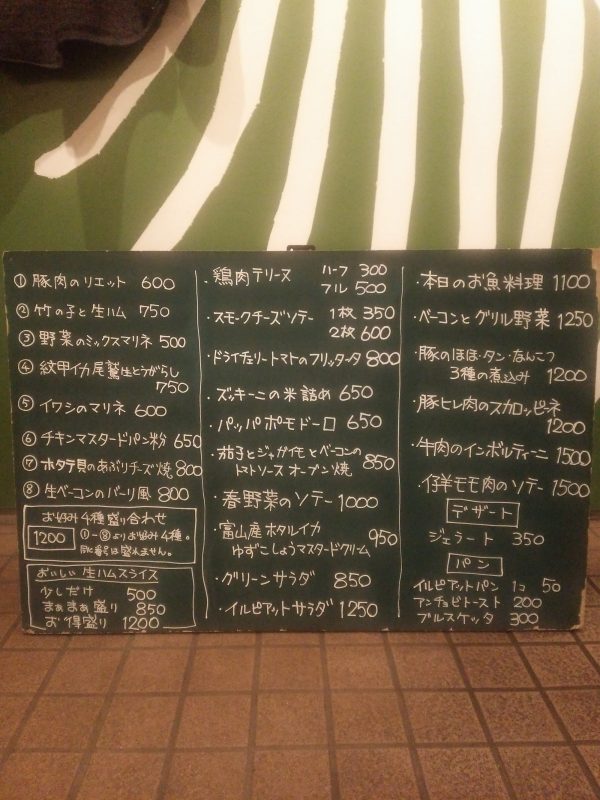 ① 豚肉のリエット 600
② 竹の子と生ハム 750
③ 野菜のミックスマリネ 500
④ 紋甲イカ尾鷲生とうがらし
750
⑤ イワシのマリネ 600
⑥ チキンマスタードパン粉 650
⑦ ホタテ貝のあぶりチーズ焼 800
⑧ 生ベーコンのバーリ風 800
お好み4種盛り合わせ
1200 ①-⑧よりお好み4種。
同じ番号は盛れません。
おいしい生ハムスライス
少しだけ 500
まぁまぁ盛り 850
お得盛り 1200
・鶏肉テリーヌ ハーフ 300
フル 500
・スモークチーズソテー 1枚 350
2枚 600
・ドライチェリートマトのフリッタータ 800
・ズッキーニの米詰め 650
・パッパポモドーロ 650
・茄子とジャガイモとベーコンの
トマトソースオーブン焼 850
・春野菜のソテー 1000
・富山産ホタルイカ
ゆずこしょうマスタードクリーム 950
・グリーンサラダ 850
・イルピアットサラダ 1250
・本日のお魚料理 1100
・ベーコンとグリル野菜 1250
・豚のほほ・タン・なんこつ
3種の煮込み 1200
・豚ヒレ肉のスカロッピーネ
1200
・牛肉のインボルティーニ 1500
・仔羊モモ肉のソテー 1500
デザート
ジェラート 350
パン
イルピアットパン 1コ 50
アンチョビトースト 200
ブルスケッタ 300